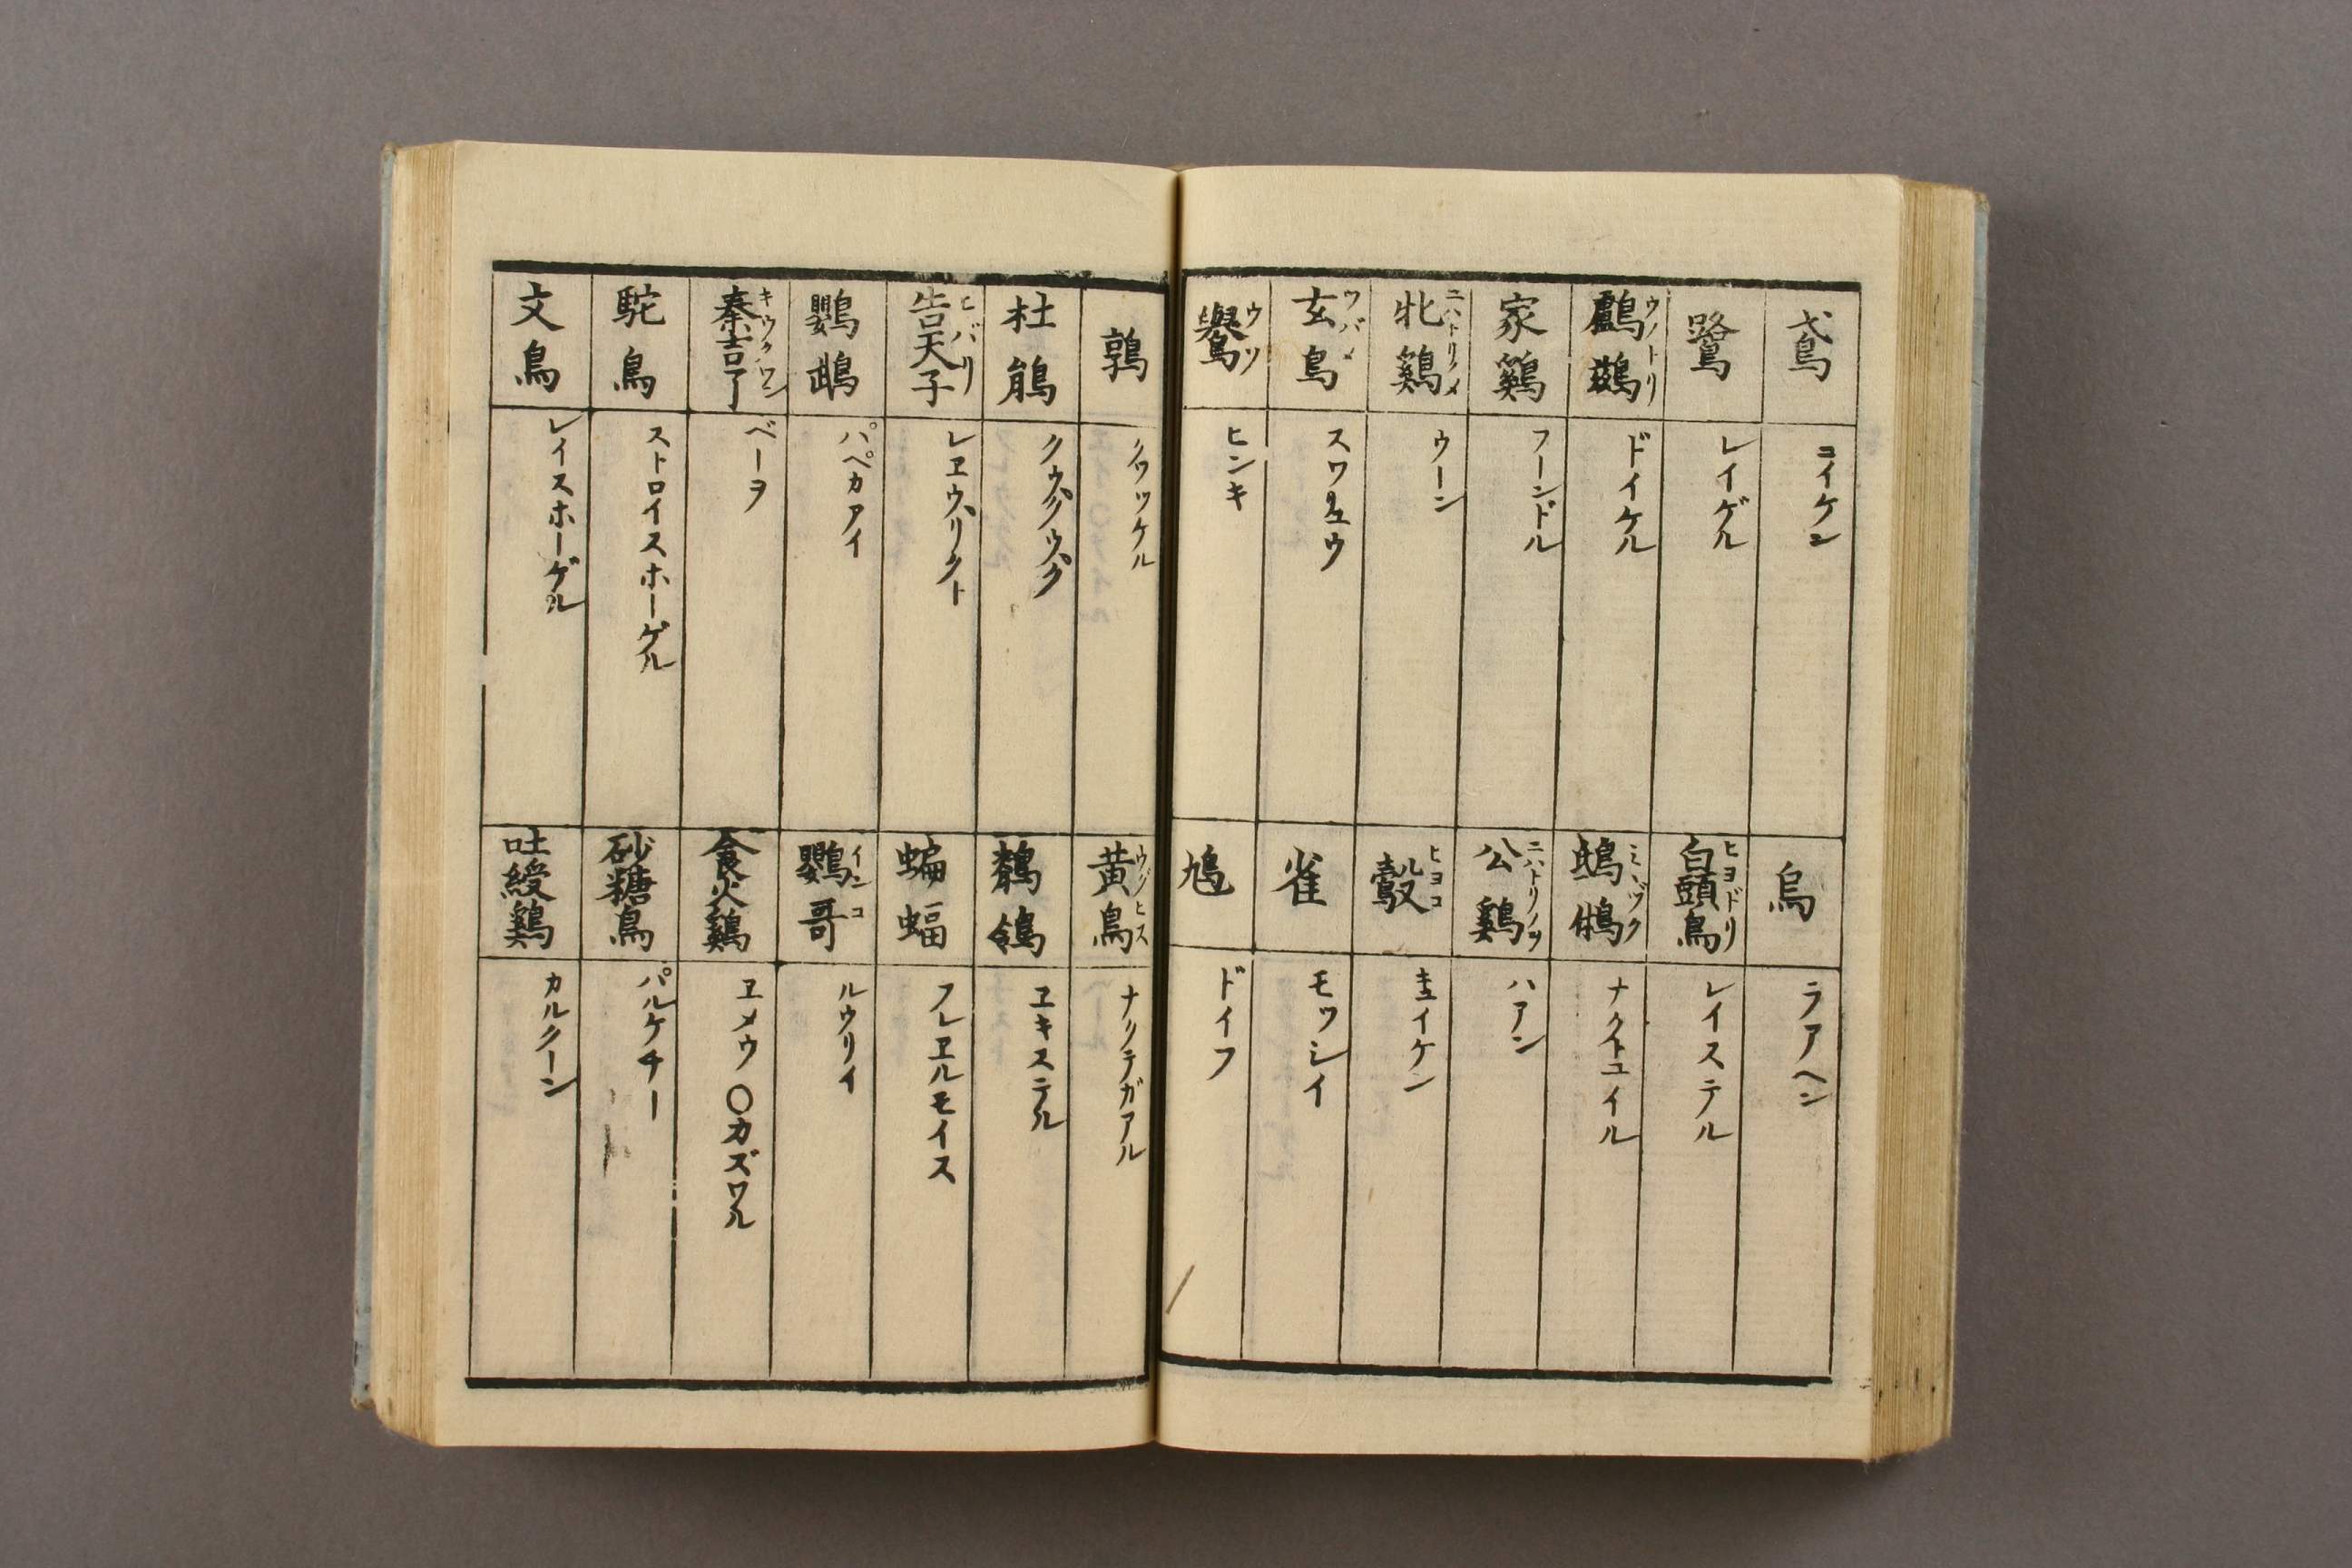 鳶 コイケン
鷺 レイゲル
鸕鷀 ウノトリ ドイケル
家鷄 フーンドル
牝鷄 ニハトリノメ ウーン
玄鳥 ツバメ
鷽 ウソ ヒンキ
烏 ラアヘン
白頭鳥 ヒヨドリ レイステル
鴟鵂 ミヽヅク ナクトユイル
公鷄 ニハトリノヲ ハアン
鷇 ヒヨコ
雀 モッシイ
鳩 ドイフ
鶉 クワッケル
杜鵑
告天子 ヒバリ
鸚鵡 パペカアイ
秦吉了 キウクワン ベーヲ
駝鳥 ストロイスホーゲル
文鳥 レイスホーゲル
黄鳥 ウグヒス ナクテガアル
鶺鴒 ヱキステル
蝙蝠 フレヱルモイス
鸚哥 インコ ルウリイ
食火鷄 ヱメウ 〇カズワル
砂糖鳥 パルケチー
吐綬鷄 カルクーン